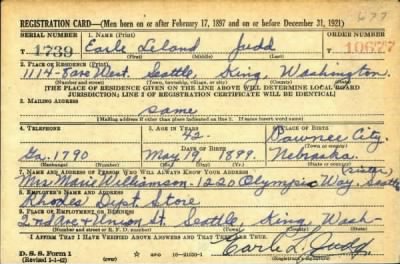 677
REGISTRATION CARD—(Men born on or after February 17, 1897 and on or before December 31, 1921)
SERIAL NUMBER 1. NAME (Print) ORDER NUMBER
T 1739 Earle Leland Judd 10677
(First) (Middle) (Last)
2. PLACE OF RESIDENCE (Print)
1114-8 ave West. Seattle, King, Washington.
(Number and street) (Town, township, village, or city) (County) (State)
[THE PLACE OF RESIDENCE GIVEN ON THE LINE ABOVE WILL DETERMINE LOCAL BOARD
JURISDICTION; LINE 2 OF REGISTRATION CERTIFICATE WILL BE IDENTICAL]
3. MAILING ADDRESS
same
[Mailing address if other than place indicated on line 2. If same insert word same]
4. TELEPHONE 5. AGE IN YEARS 6. PLACE OF BIRTH
42. Pawnee City,
DATE OF BIRTH (Town or county)
Ga. 1790 May 19 1899. Nebraska.
(Exchange) (Number) (Mo.) (Day) (Yr.) (State or country)
7. NAME AND ADDRESS OF PERSON WHO WILL ALWAYS KNOW YOUR ADDRESS (sister)
Mrs. Marie Williamson-1220 Olympic Way, Seattle
8. EMPLOYER'S NAME AND ADDRESS
Rhodes Dept. Store
9. PLACE OF EMPLOYMENT OR BUSINESS
2nd ave & Union St. Seattle, King Wash-
(Number and street or R. F. D. number) (Town) (County) (State)
I AFFIRM THAT I HAVE VERIFIED ABOVE ANSWERS AND THAT THEY ARE TRUE.
D. S. S. Form 1 GPO 16-21630-1 Earle L. Judd
(Revised 1-1-42) (over)